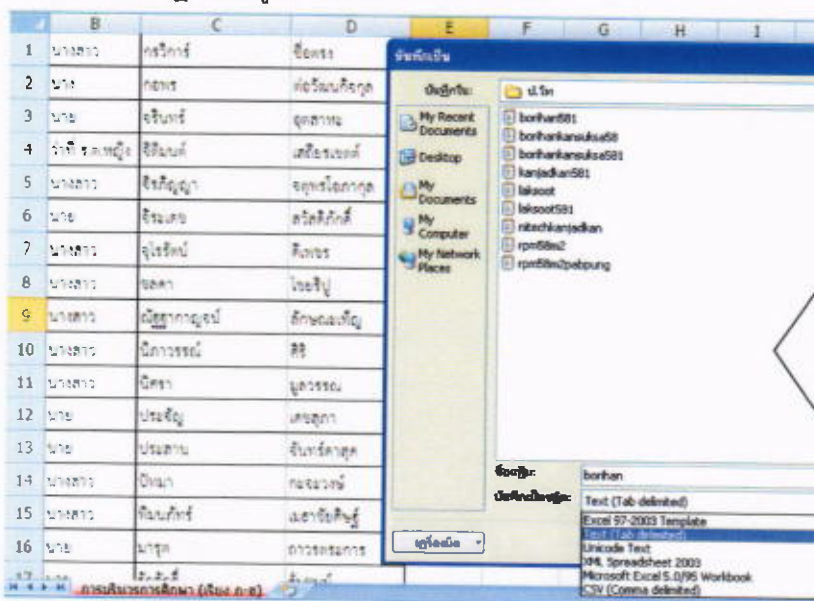 B C D E F G H I
1 นางสาว กรวิการ์ ชื่อตรง
2 นาง กอพร
3 นาย จรินทร์ อุตสาหะ
4 ว่าที่ ร.ต.หญิง ธิติมนต์ เสถียรเขตต์
5 นางสาว จิรภิญญา จตุพรโอภากุล
6 นาย จิระเดช สวัสดิภักดิ์
7 นางสาว จุไรรัตน์ ดีเพชร
8 นางสาว ชลดา ไชยริปู
9 นางสาว ณัฐฐากาญจน์ ลักษณะเพ็ญ
10 นางสาว นิภาวรรณ์ ศิริ
11 นางสาว นิศรา มูลวรรณ
12 นาย ประจัญ เดชสุภา
13 นาย ประสาน จันทร์คาสุด
14 นางสาว ปัทมา
15 นางสาว พิมนภัทร์ เมธาชัยศิษฐ์
16 นาย มารุต ถาวรตระการ
17
การบริหารการศึกษา (เรียง ก-ฮ)
บันทึกเป็น
บันทึกใน: ป.โท
My Recent Documents
Desktop
My Documents
My Computer
My Network Places
borihan581
borihankansuksa58
borihankansuksa581
kanjadkan581
laksoot
laksoot581
nitechkanjadkan
rpm58m2
rpm58m2pabpung
ชื่อแฟ้ม: borihan
บันทึกเป็นชนิด: Text (Tab delimited)
Excel 97-2003 Template
Text (Tab delimited)
Unicode Text
XML Spreadsheet 2003
Microsoft Excel 5.0/95 Workbook
CSV (Comma delimited)
เครื่องมือ